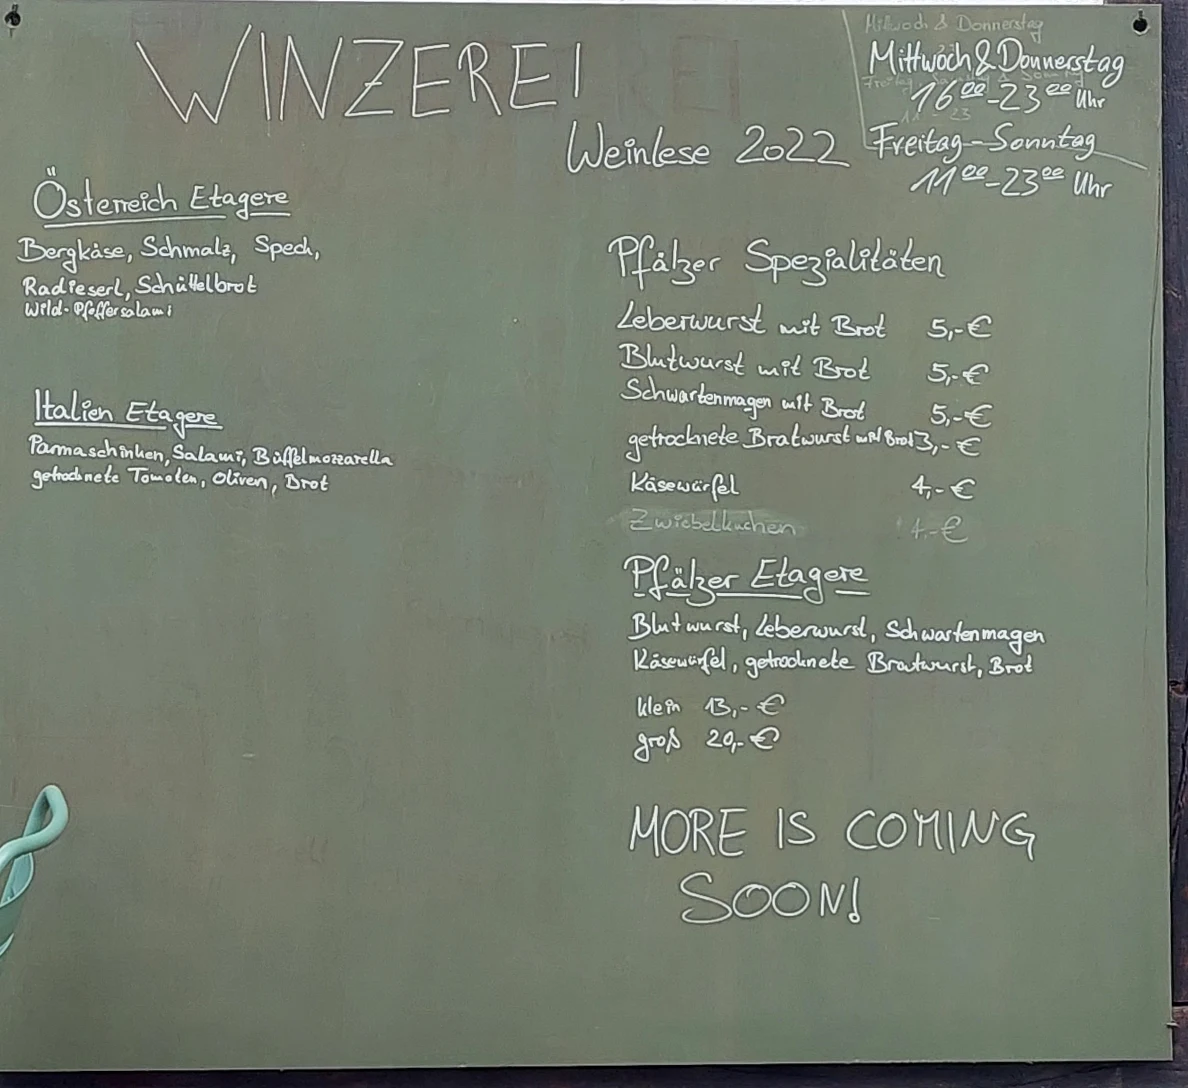 WINZEREI
Weinlese 2022
Mittwoch & Donnerstag
Mittwoch & Donnerstag
16⁰⁰-23⁰⁰ Uhr
11 - 23
Freitag-Sonntag
11⁰⁰-23⁰⁰ Uhr
Österreich Etagere
Bergkäse, Schmalz, Speck,
Radieserl, Schüttelbrot
Wild-Pfeffersalami
Italien Etagere
Parmaschinken, Salami, Büffelmozzarella
getrocknete Tomaten, Oliven, Brot
Pfälzer Spezialitäten
Leberwurst mit Brot 5,-€
Blutwurst mit Brot 5,-€
Schwartenmagen mit Brot 5,-€
getrocknete Bratwurst mit Brot 3,-€
Käsewürfel 4,-€
Zwiebelkuchen 4,-€
Pfälzer Etagere
Blutwurst, Leberwurst, Schwartenmagen
Käsewürfel, getrocknete Bratwurst, Brot
klein 13,-€
groß 20,-€
MORE IS COMING
SOON!